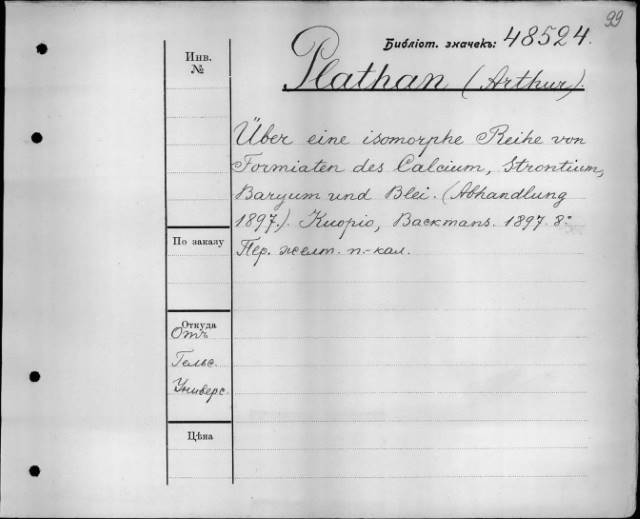 99
Библіот. значекъ: 48524.
Инв.
№
Plathan (Arthur).
Über eine isomorphe Reihe von
Formiaten des Calcium, Strontium,
Baryum und Blei. (Abhandlung
1897.). Kuopio, Backmans. 1897. 8º
Пер. желт. п.-кал.
По заказу
Откуда
Отъ
Гельс.
Универс.
Цѣна